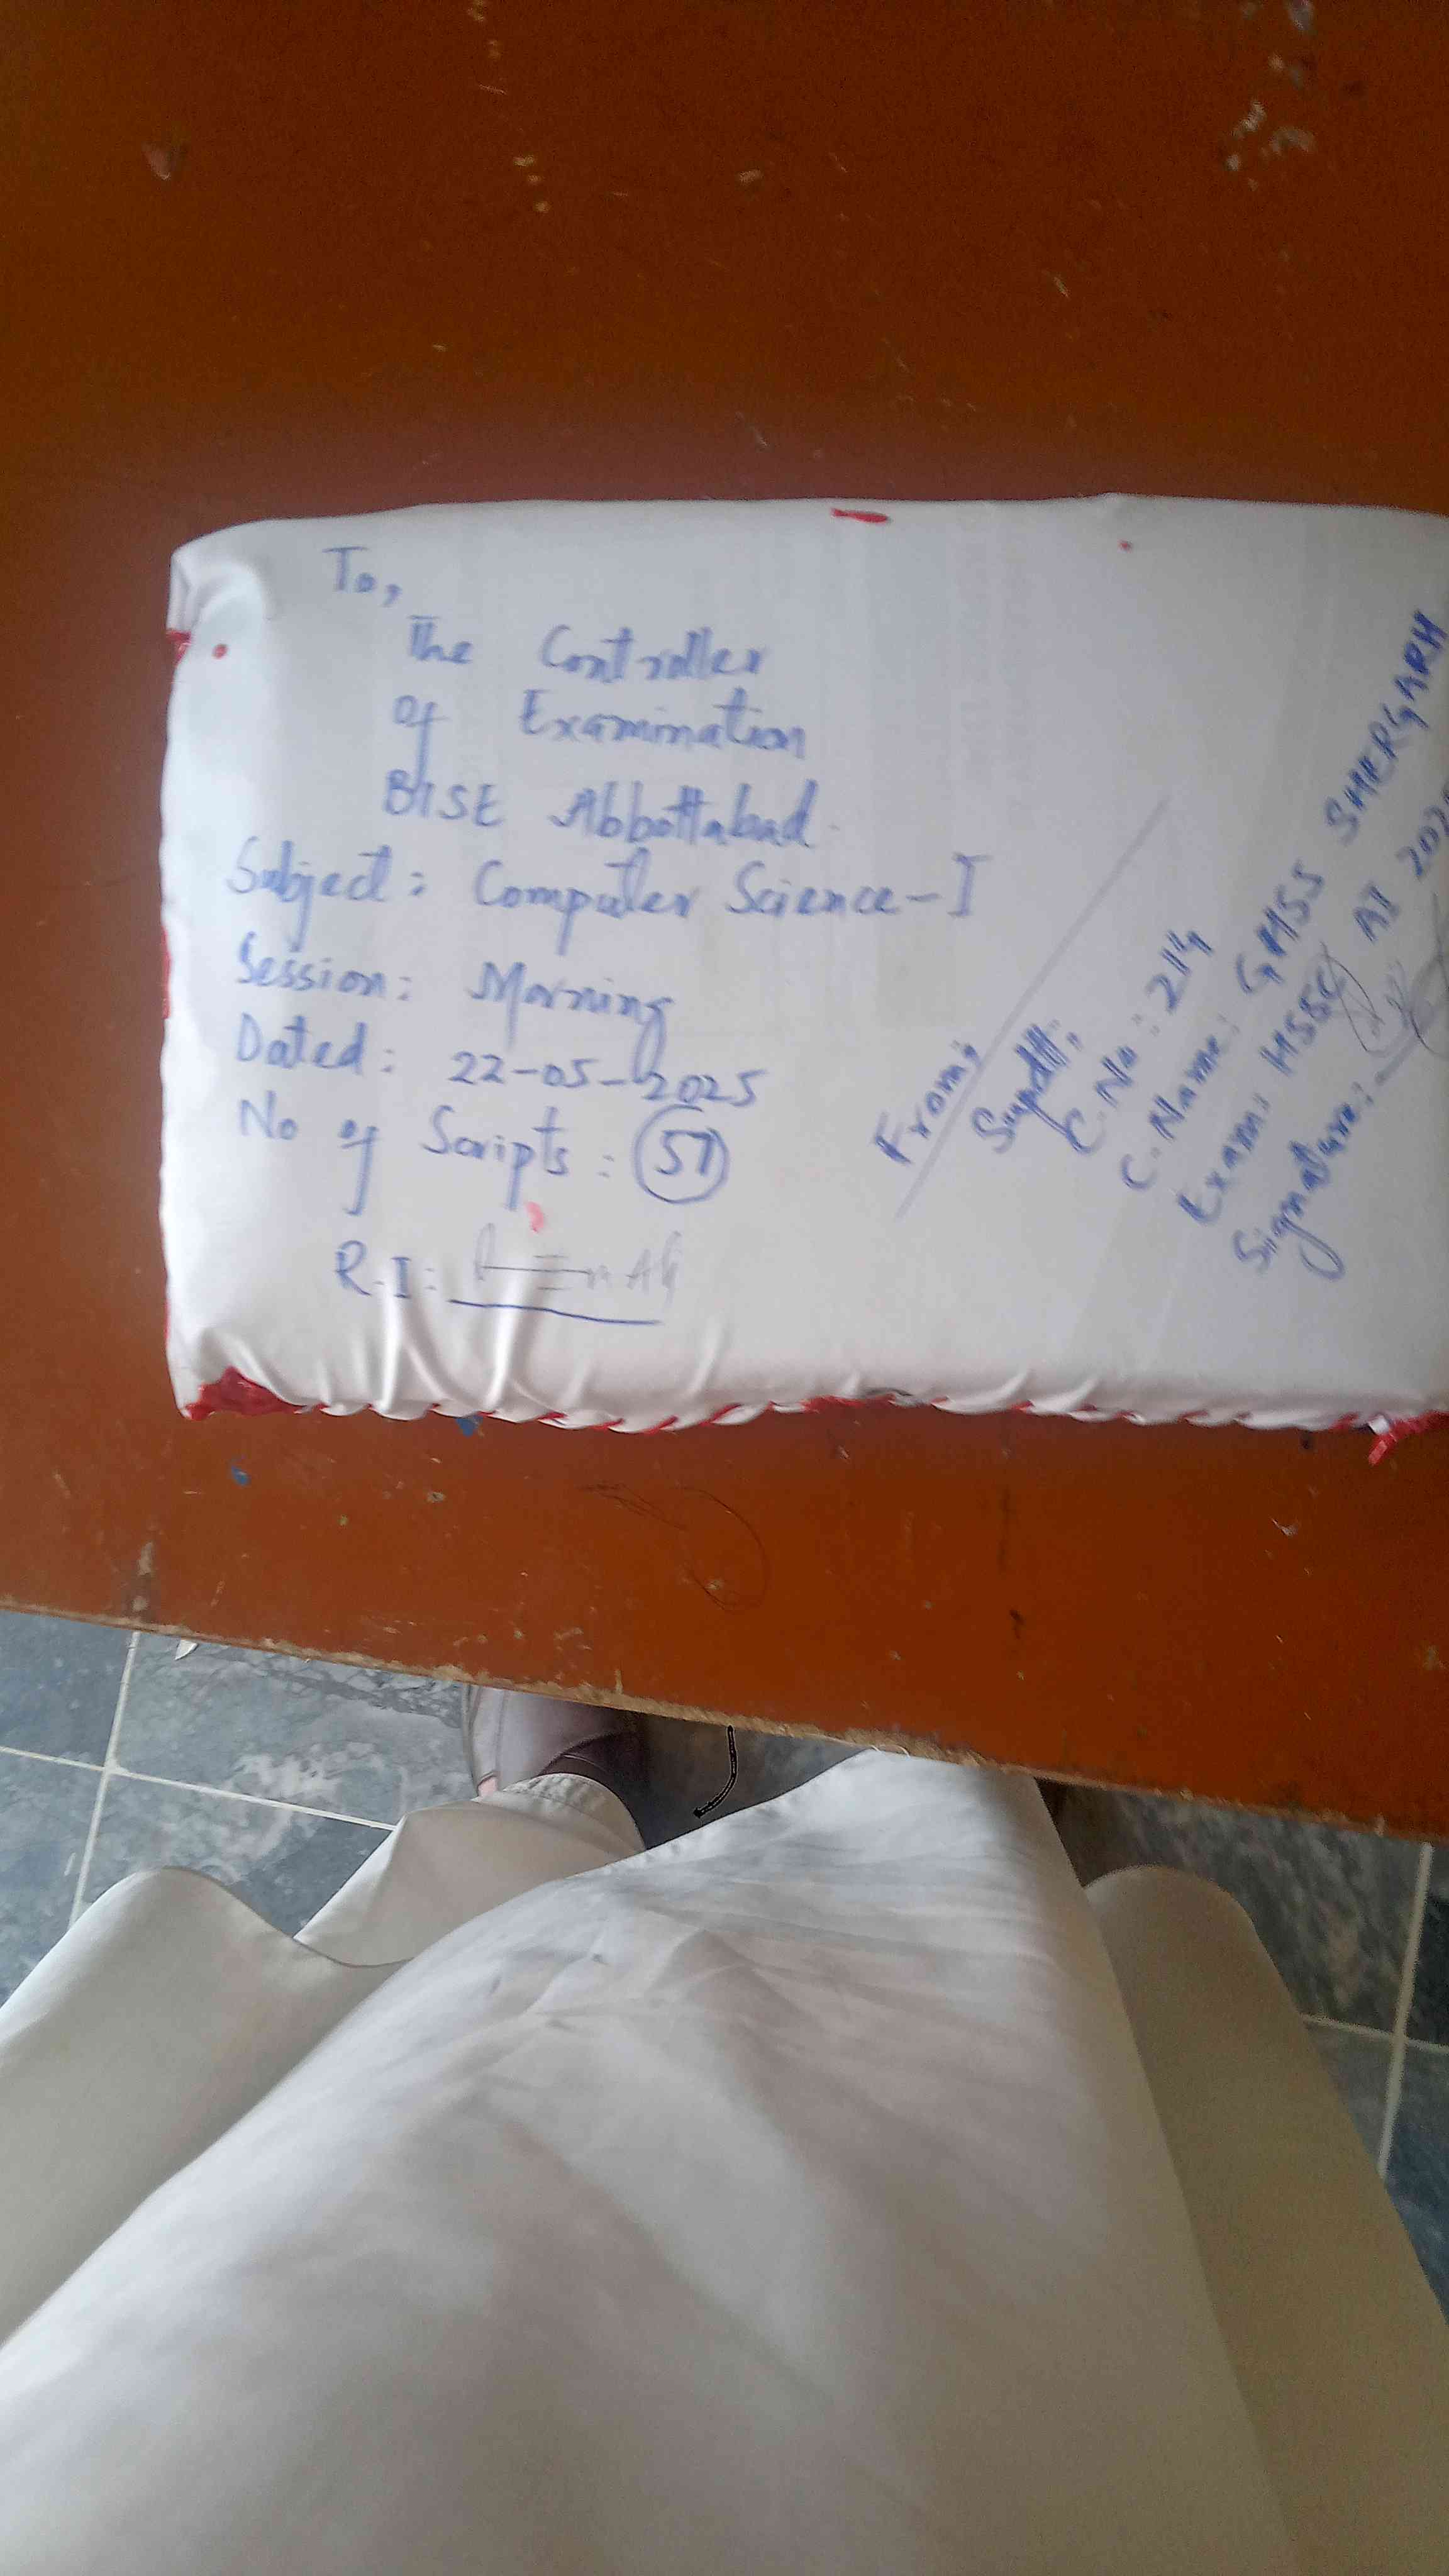 To,
The Controller
of Examination
BISE Abbottabad.
Subject: Computer Science-I
Session: Morning
Dated: 22-05-2025
No of Scripts: 57
R.I:
From;
Supdtt;
C.No: 214
C.Name: GHSS SHERGARH
Exam: HSSC AI
Signature: